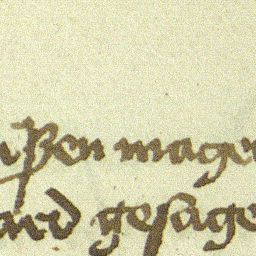 ißen magen
ard gesage